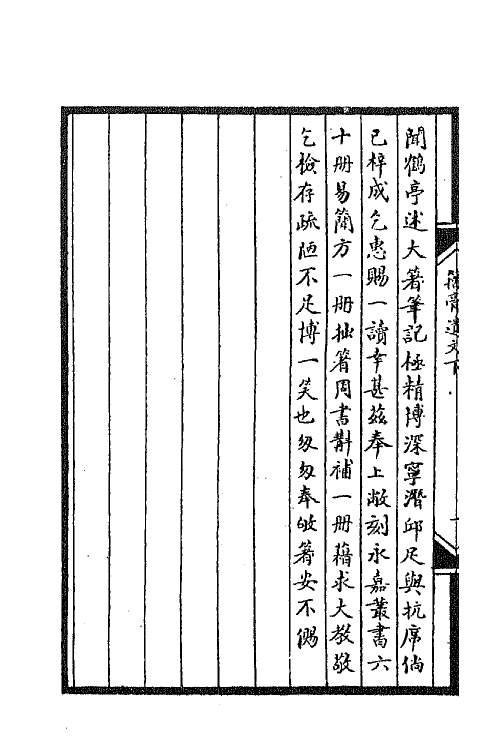 聞鶴亭述大著筆記極精博深寧潛邱足與抗席倘
已梓成乞惠賜一讀幸甚茲奉上敝刻永嘉叢書六
十册易簡方一册拙箸周書斠補一册藉求大教敬
乞檢存疏陋不足博一笑也匆匆奉敂箸安不僩
籀膏遺文下